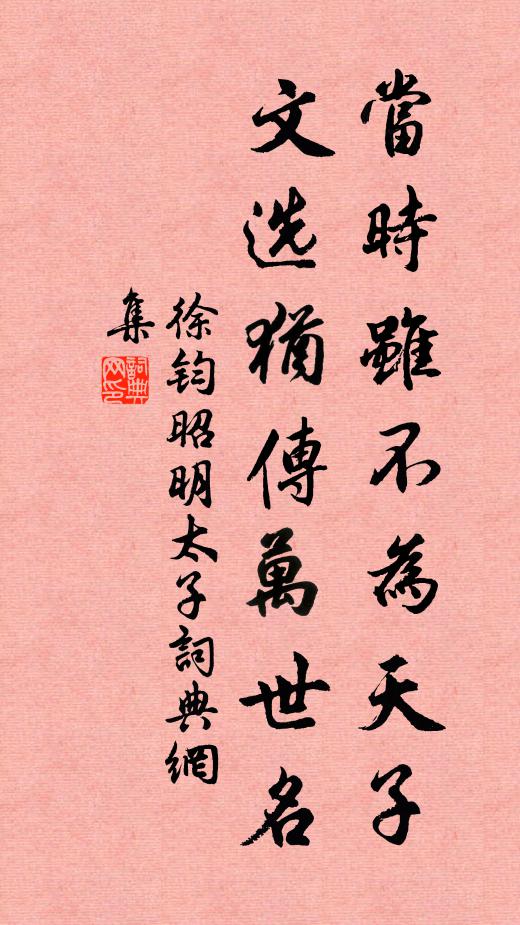 當時雖不為天子
文选猶傳萬世名
徐鈞昭明太子詞典網
集
詞典
网印